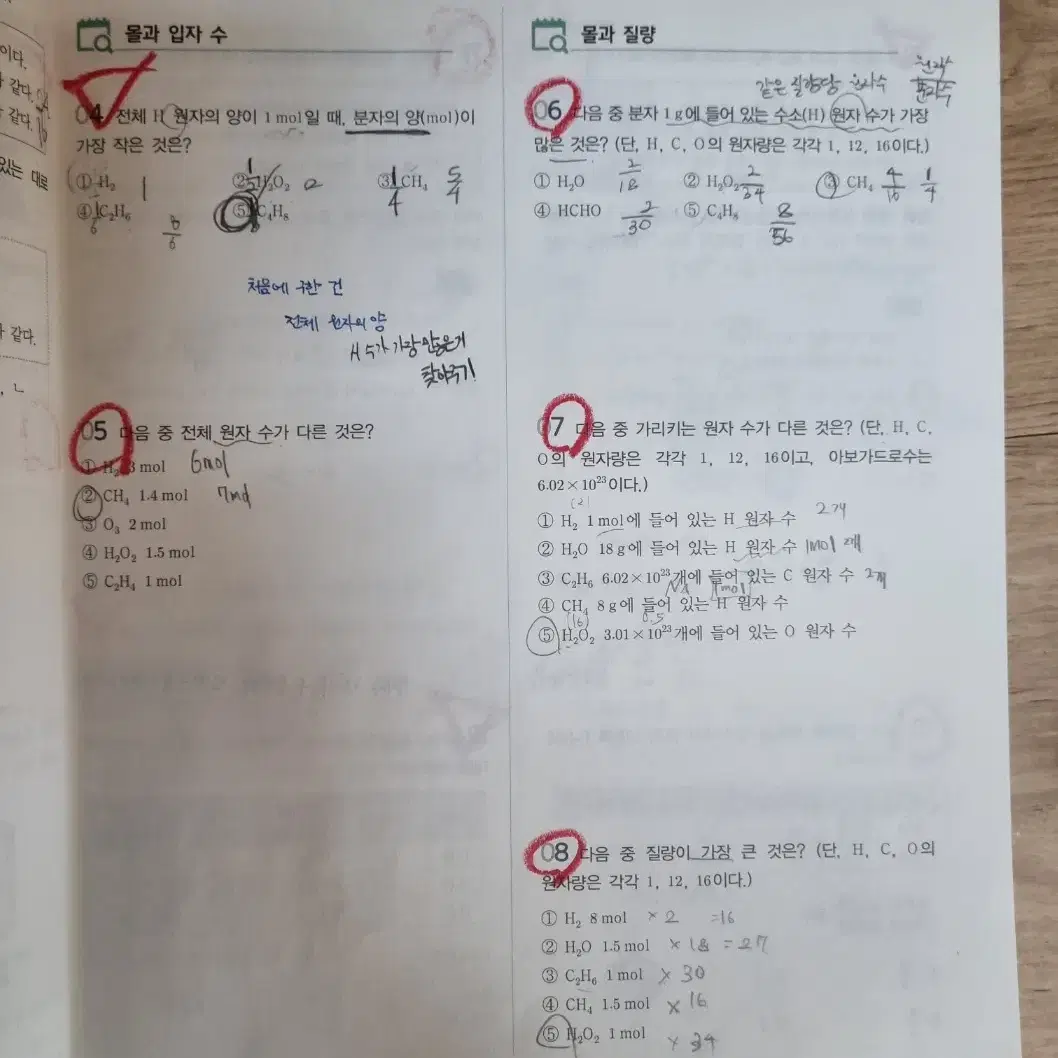 몰과 입자 수
04 전체 H 원자의 양이 1 mol일 때, 분자의 양(mol)이
가장 작은 것은?
① H₂ 1 ② H₂O₂ 2 ③ CH₄ 1/4 5/4
④ C₂H₆ 8/6 ⑤ C₄H₈
처음에 구한 건
전체 원자의 양
H 수가 가장 많은거
찾아주기!
05 다음 중 전체 원자 수가 다른 것은?
① H₂ 3 mol 6mol
② CH₄ 1.4 mol 7mol
③ O₃ 2 mol
④ H₂O₂ 1.5 mol
⑤ C₂H₄ 1 mol
몰과 질량
같은 질량당 원자수 원자수/분자수
06 다음 중 분자 1 g에 들어 있는 수소(H) 원자 수가 가장
많은 것은? (단, H, C, O의 원자량은 각각 1, 12, 16이다.)
① H₂O 2/18 ② H₂O₂ 2/34 ③ CH₄ 4/16 1/4
④ HCHO 2/30 ⑤ C₄H₈ 8/56
07 다음 중 가리키는 원자 수가 다른 것은? (단, H, C,
O의 원자량은 각각 1, 12, 16이고, 아보가드로수는
6.02×10²³이다.)
(2)
① H₂ 1 mol에 들어 있는 H 원자 수 2개
② H₂O 18 g에 들어 있는 H 원자 수 1mol 2개
③ C₂H₆ 6.02×10²³개에 들어 있는 C 원자 수 2개
NA 1mol
④ CH₄ 8 g에 들어 있는 H 원자 수
(16) 0.5
⑤ H₂O₂ 3.01×10²³개에 들어 있는 O 원자 수
08 다음 중 질량이 가장 큰 것은? (단, H, C, O의
원자량은 각각 1, 12, 16이다.)
① H₂ 8 mol ×2 =16
② H₂O 1.5 mol ×18 =27
③ C₂H₆ 1 mol ×30
④ CH₄ 1.5 mol ×16
⑤ H₂O₂ 1 mol ×34
이다.
같다.
같다.
있는 대로
같다.
, ㄴ